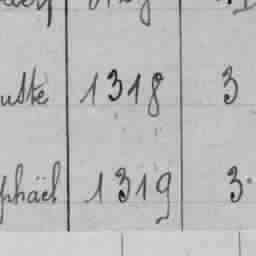 uste 1318 3
phaël 1319 3.